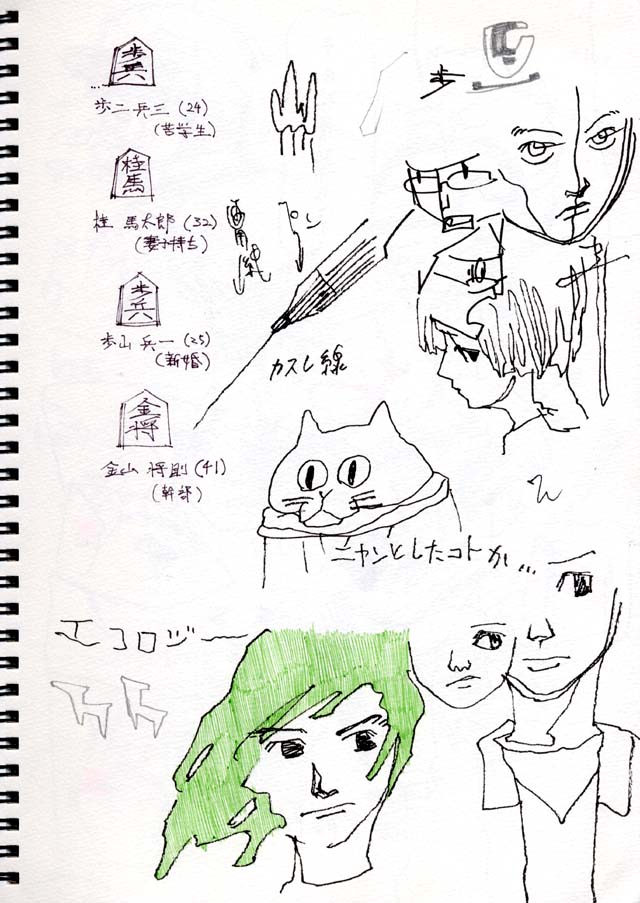 歩兵
歩二兵三(24)
(苦学生)
桂馬
桂 馬太郎(32)
(妻子持ち)
歩兵
歩山 兵一(25)
(新婚)
金将
金山 将則(41)
(幹部)
歩
ペン
カスレ線
ニャンとしたコトか...
エコロジー